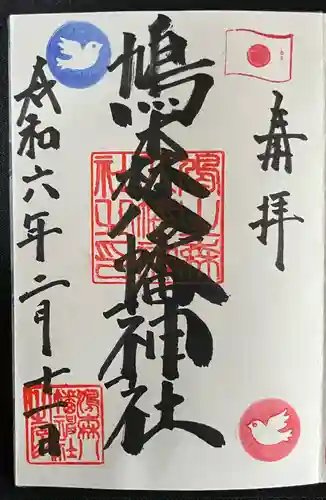 奉拝
鳩森八幡神社
令和六年二月十一日